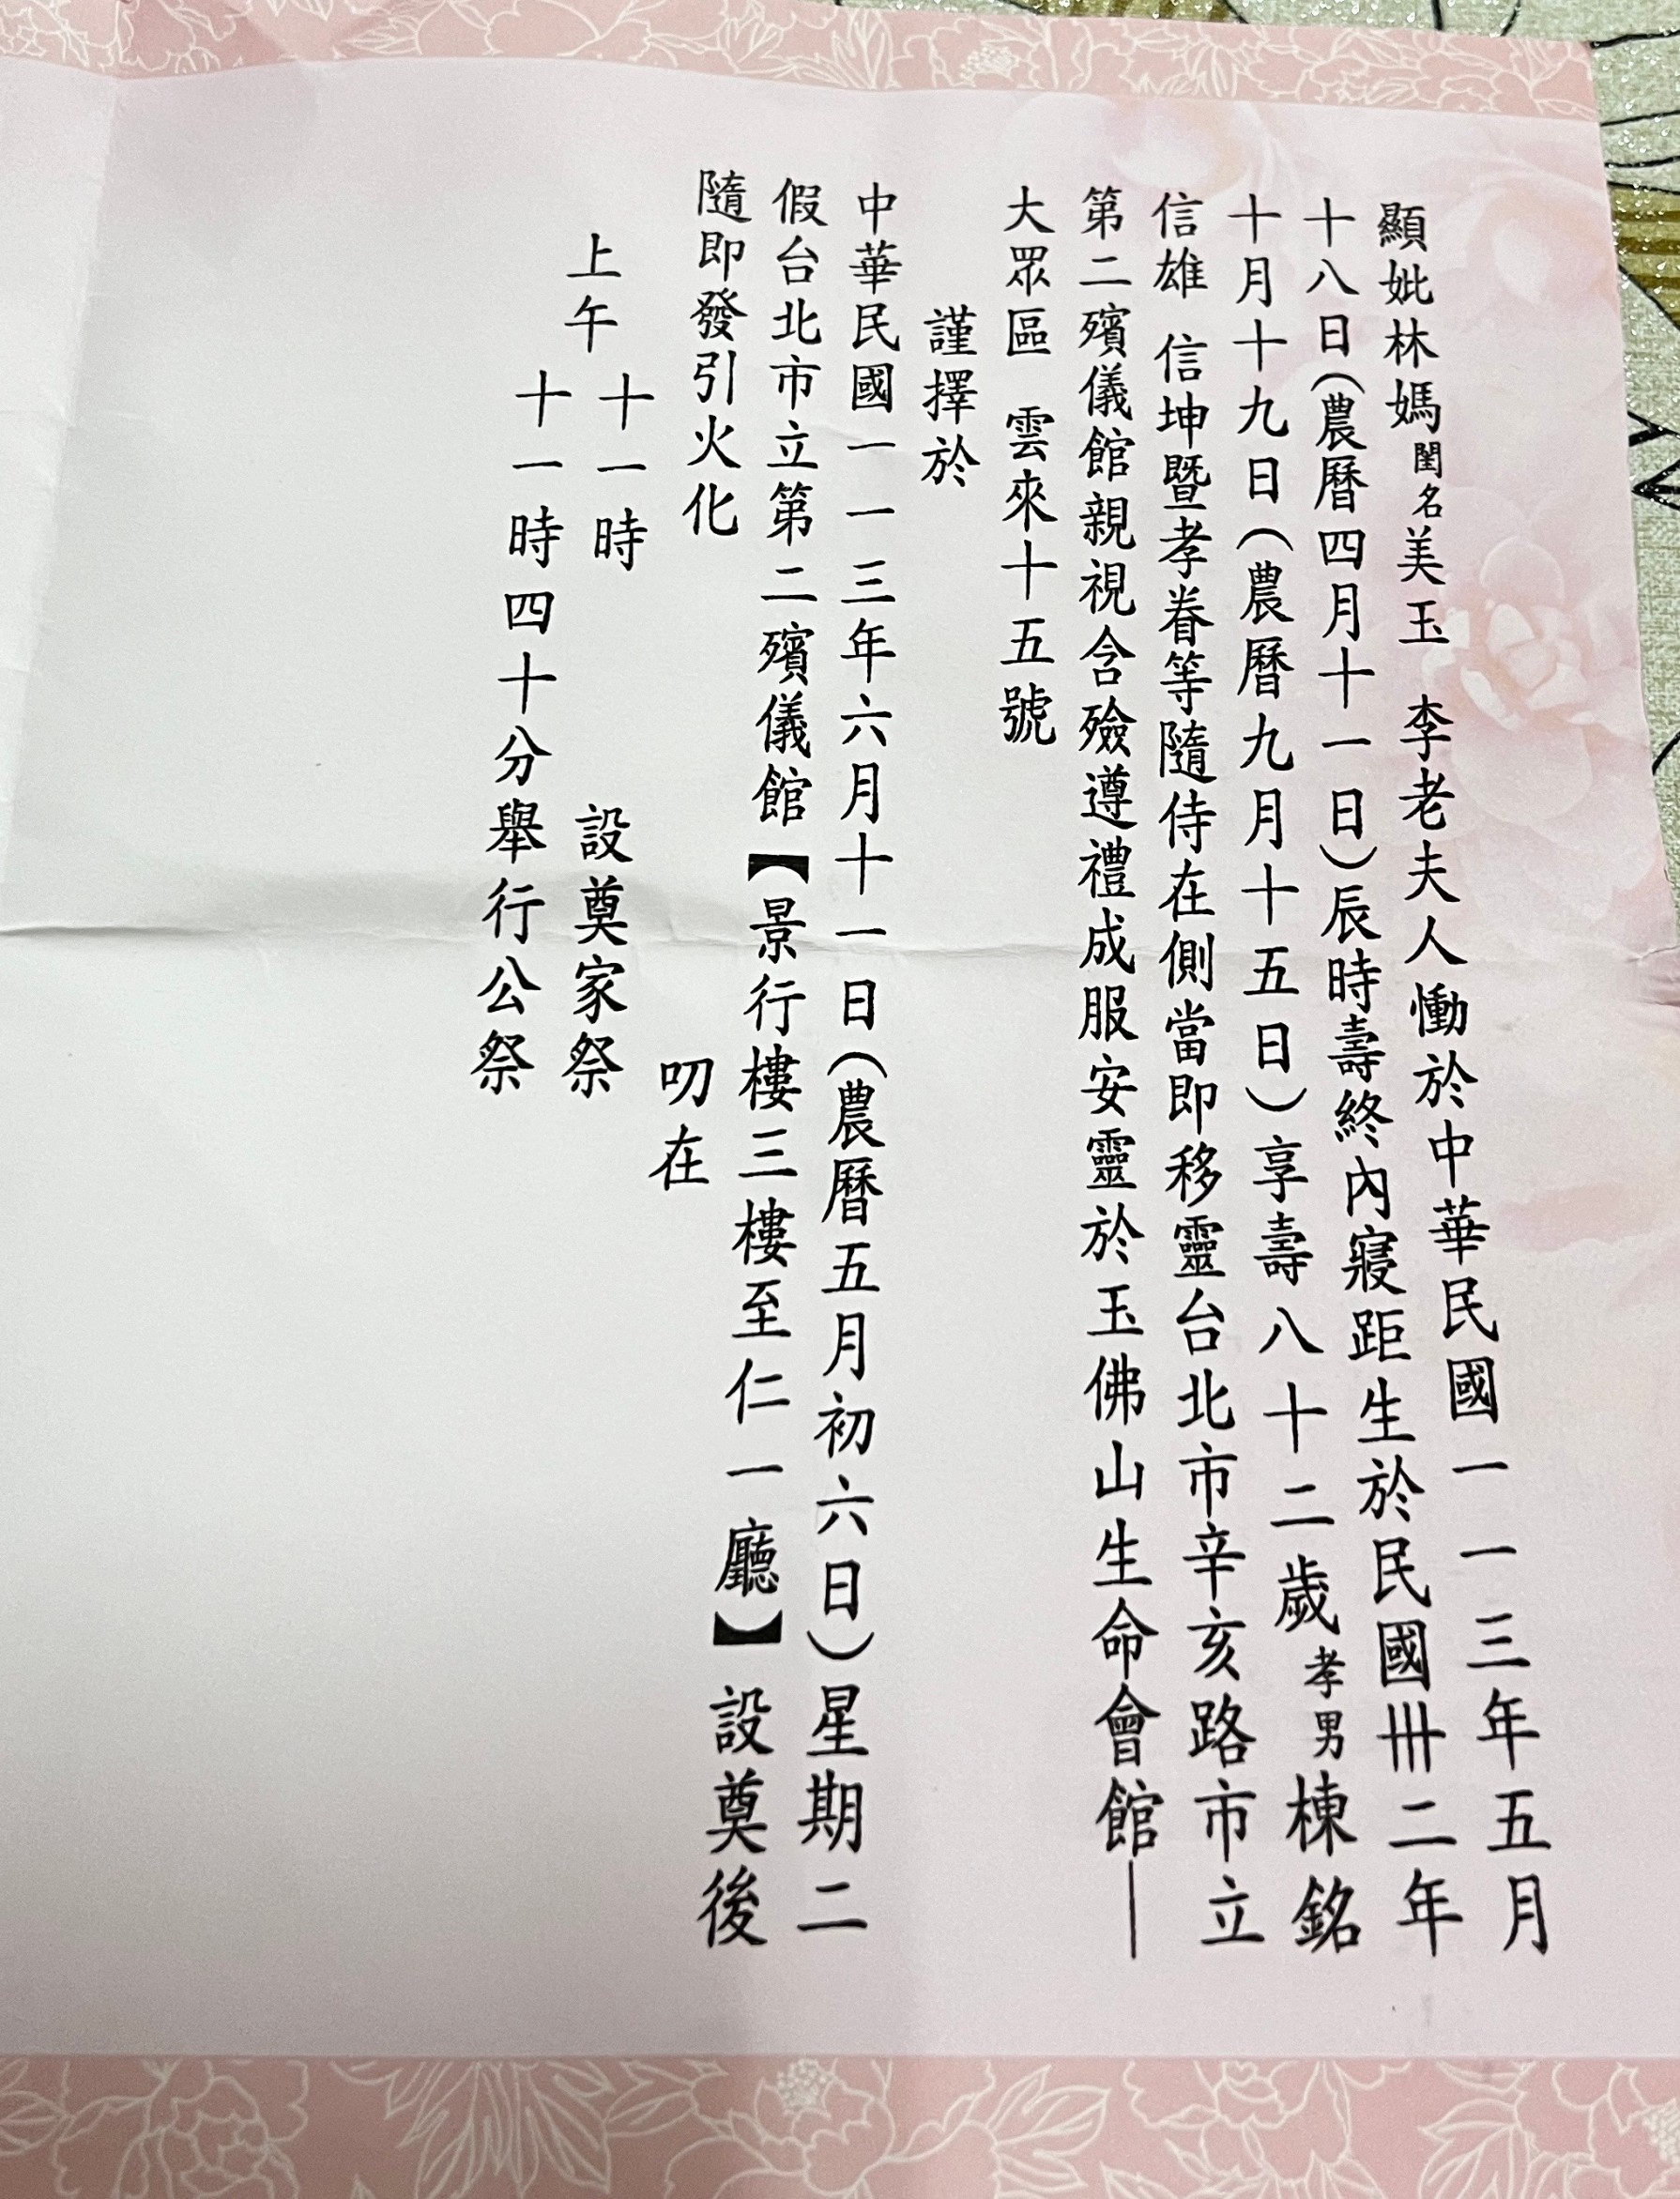 顯妣林媽閨名美玉　李老夫人慟於中華民國一一三年五月
十八日(農曆四月十一日)辰時壽終內寢距生於民國卌二年
十月十九日(農曆九月十五日)享壽八十二歲孝男棟銘
信雄　信坤暨孝眷等隨侍在側當即移靈台北市辛亥路市立
第二殯儀館親視含殮遵禮成服安靈於玉佛山生命會館—
大眾區　雲來十五號
謹擇於
中華民國一一三年六月十一日(農曆五月初六日)星期二
假台北市立第二殯儀館【景行樓三樓至仁一廳】設奠後
隨即發引火化
叨在
上午　十一時　設奠家祭
十一時四十分舉行公祭